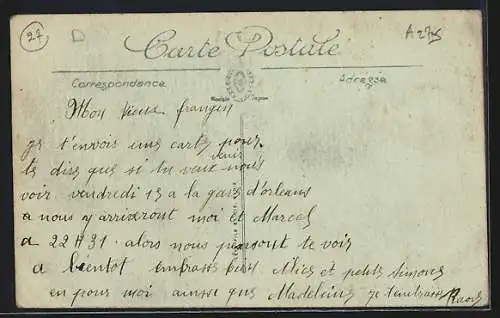 27
D
A 275
Carte Postale
Correspondance
Adresse
Mon vieux frangin
je t'envois une carte pour
te dire que si tu veux venir nous
voir vendredi 13 a la gare d'orleans
a nous y arriveront moi et Marcel
a 22H31. alors nous pensont te voir
a bientot embrasse bien Alice et petite Simone
en pour moi ainsi que Madeleine je t'embrasse Raoul